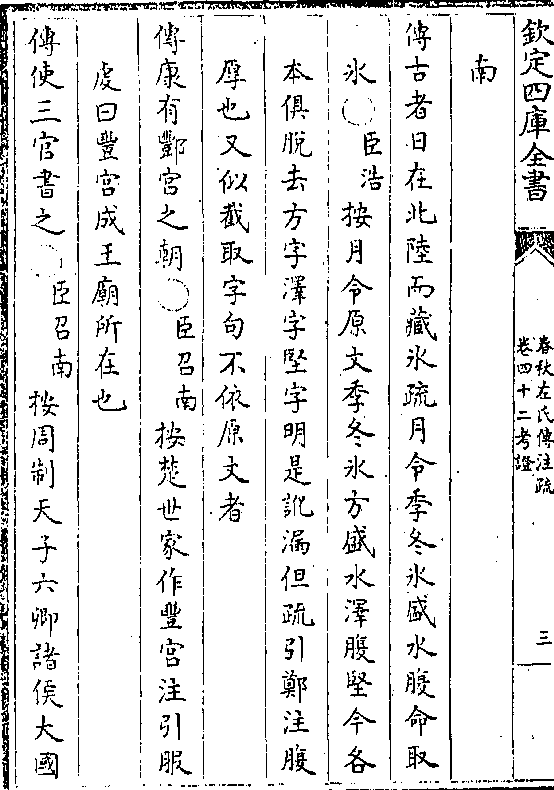 欽定四庫全書
春秋左氏傳注疏
卷四十二考證
三
南
傳古者日在北陸而藏氷疏月令季冬氷盛水腹命取
氷○臣浩按月令原文季冬氷方盛水澤腹堅今各
本俱脫去方字澤字堅字明是訛漏但疏引鄭注腹
厚也又似截取字句不依原文者
傳康有酆宮之朝○臣召南按楚世家作豐宮注引服
虔曰豐宮成王廟所在也
傳使三官書之○臣召南按周制天子六卿諸侯大國